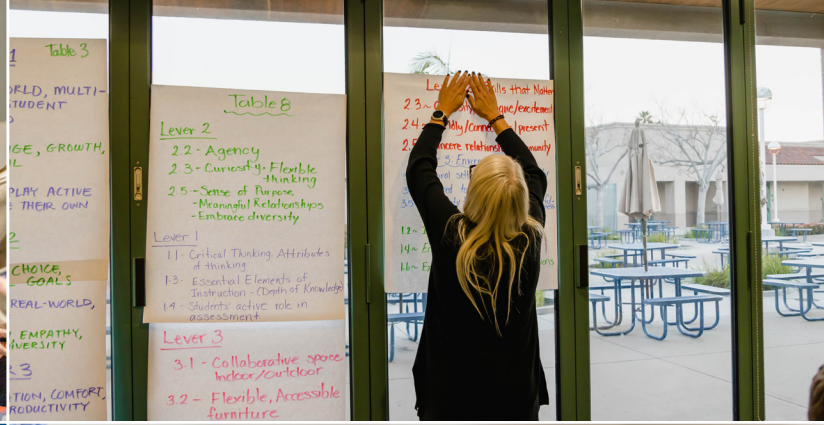 Table 3
1
ORLD, MULTI-
STUDENT
GE, GROWTH,
PLAY ACTIVE
THEIR OWN
2
CHOICE,
GOALS
REAL-WORLD,
EMPATHY,
IVERSITY
R 3
TION, COMFORT,
RODUCTIVITY
Table 8
Lever 2
2.2 - Agency
2.3 - Curiosity · Flexible
thinking
2.5 - Sense of Purpose
- Meaningful Relationships
- Embrace diversity
Lever 1
1.1 - Critical Thinking, Attributes
of thinking
1.3 - Essential Elements of
Instruction - (Depth of Knowledge)
1.4 - Students' active role in
assessment
Lever 3
3.1 - Collaborative space
Indoor/outdoor
3.2 - Flexible, Accessible
furniture
Le ills that Matter
2.3~ que/excitement
2.4 dly/ present
2. ncere relations munity
3.
1.2~
1.4~ E
1.6~